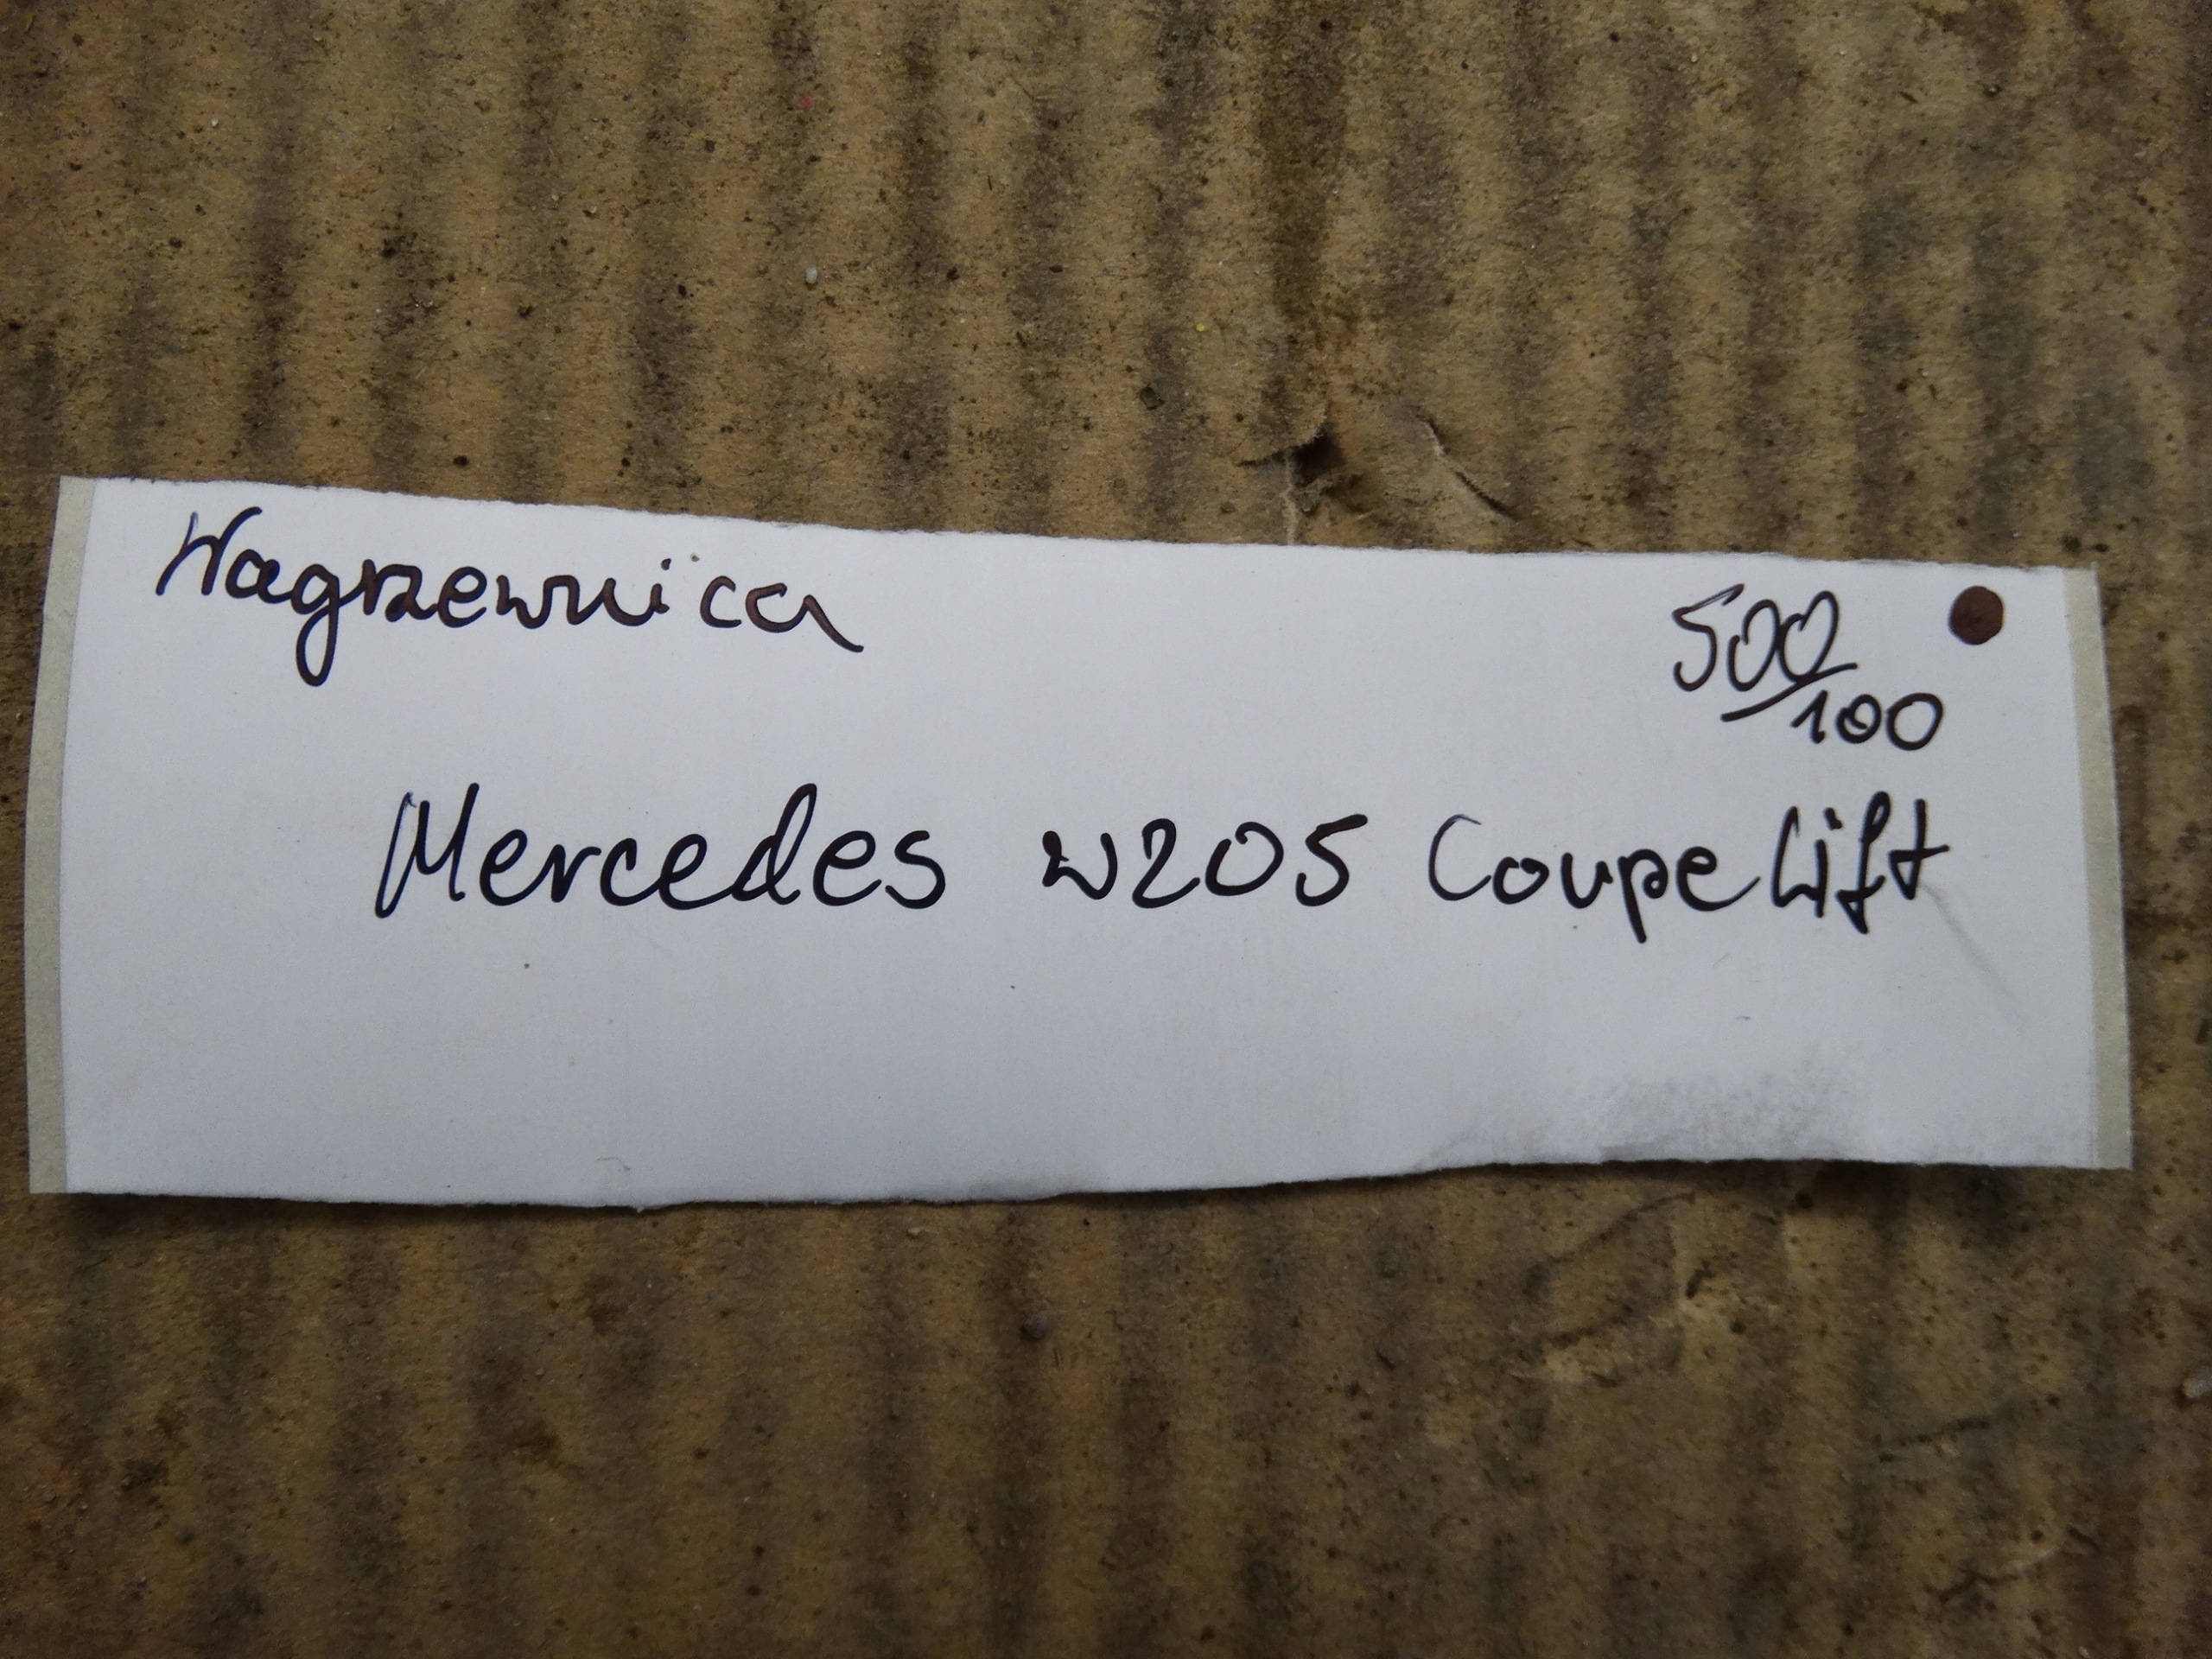 Nagrzewnica
500/100
Mercedes W205 Coupe Lift